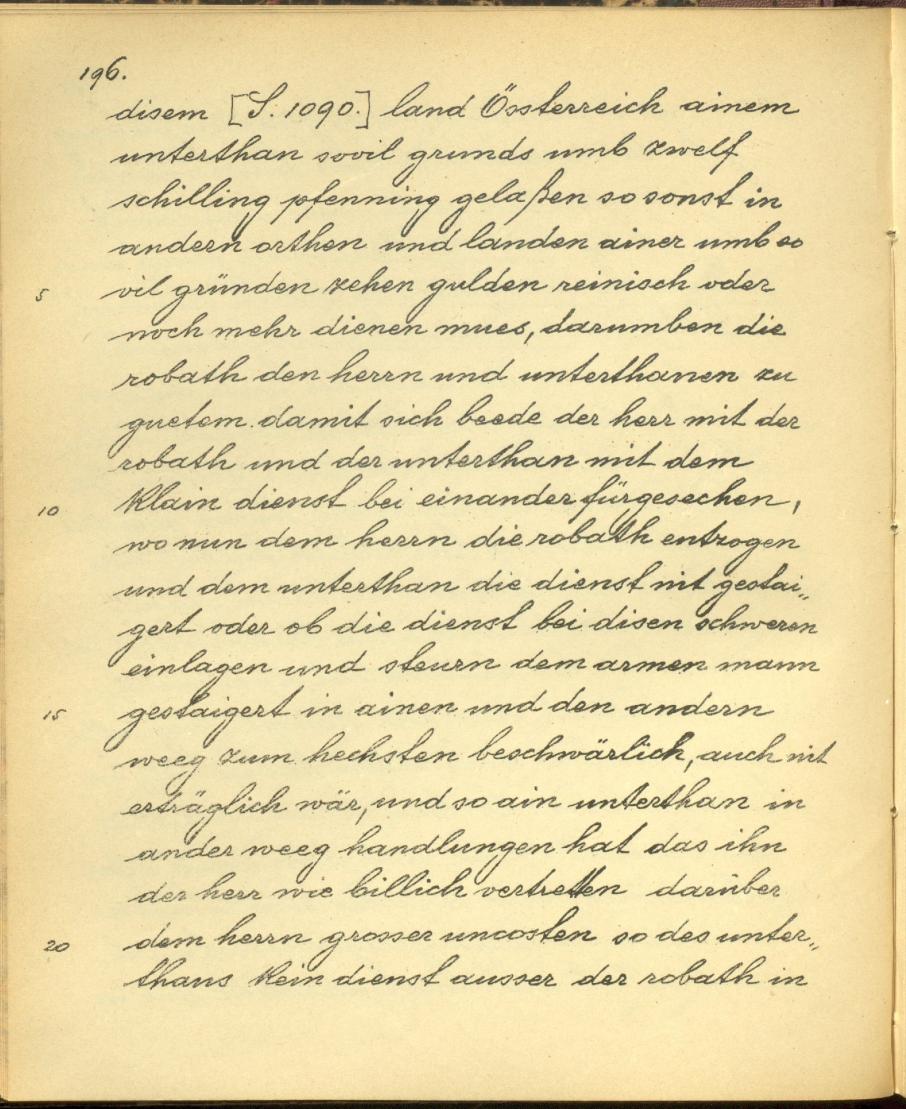 196.
disem [S. 1090.] land Össterreich ainem
unterthan sovil grunds umb zwelf
schilling pfenning gelaßen so sonst in
andern orthen und landen ainer umb so
5 vil gründen zehen gulden reinisch oder
noch mehr dienen mues, darumben die
robath den herrn und unterthanen zu
guetem damit sich beede der herr mit der
robath und der unterthan mit dem
10 klain dienst bei einander fürgesechen,
wo nun dem herrn die robath entzogen
und dem unterthan die dienst nit gestai„
gert oder ob die dienst bei disen schweren
einlagen und steurn dem armen mann
15 gestaigert in ainen und den andern
weeg zum hechsten beschwärlich, auch nit
erträglich wär, und so ain unterthan in
ander weeg handlungen hat das ihn
der herr wie billich vertretten darüber
20 dem herrn grosser uncosten so des unter„
thans kein dienst ausser der robath in